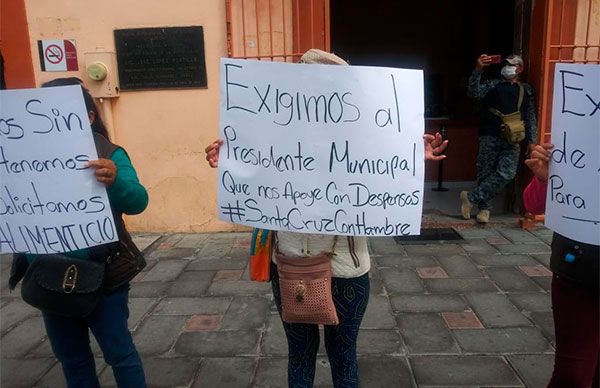 os Sin
tenemos
Solicitamos
ALIMENTICIO
Exigimos al
Presidente Municipal
Que nos Apoye Con Despensas
#SantaCruzConHambre
Ex
de
Para